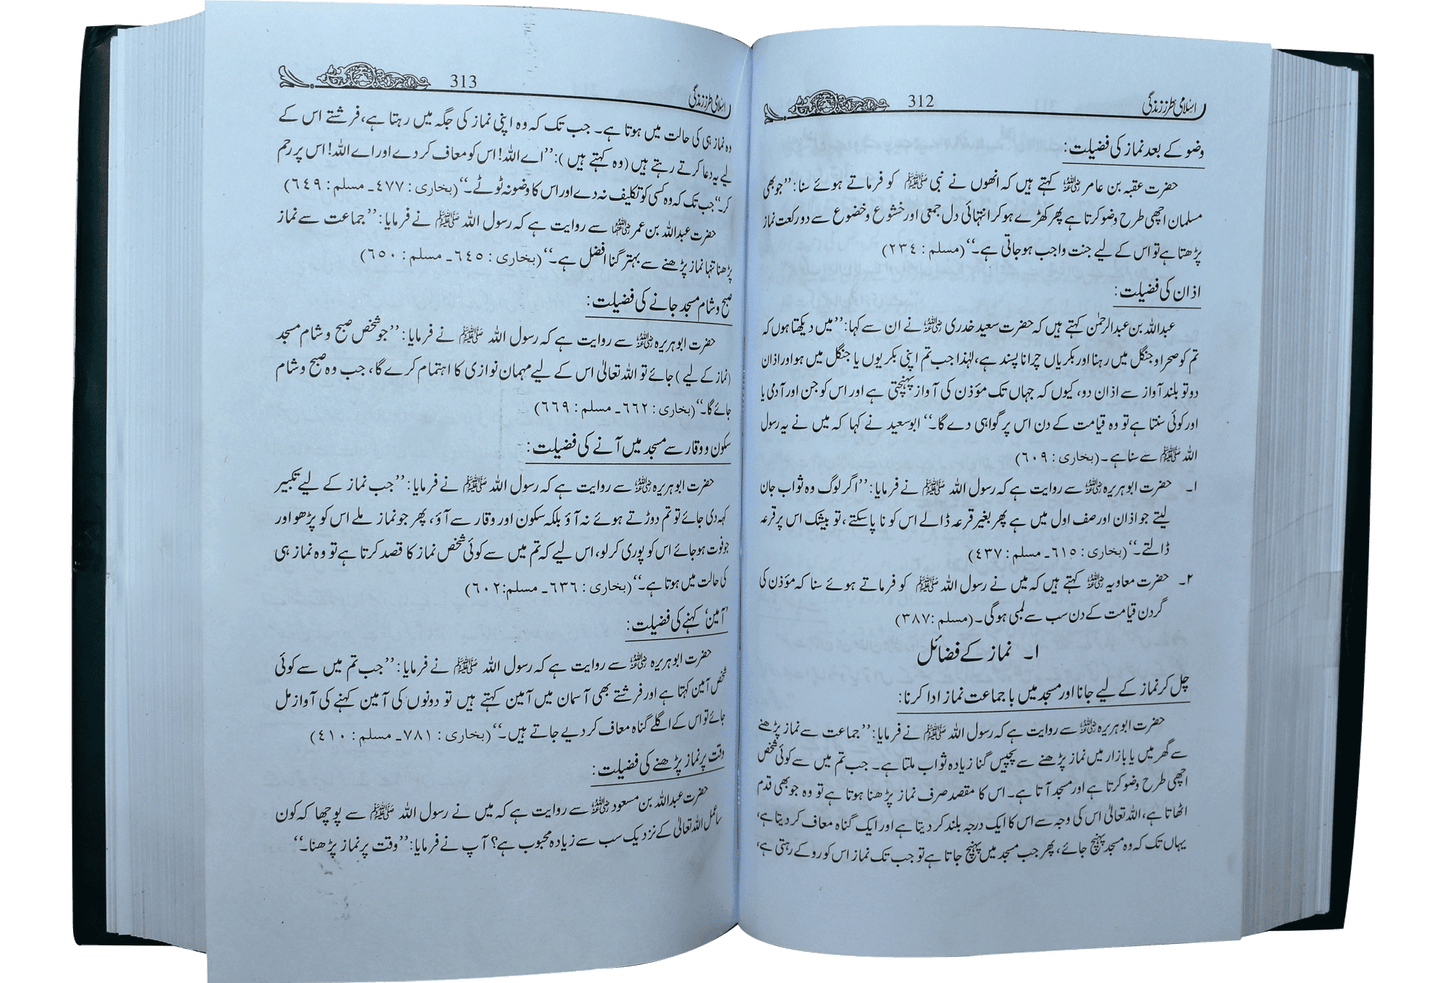 اسلامی طرز زندگی 312
وضو کے بعد نماز کی فضیلت:
حضرت عقبہ بن عامر رضی اللہ عنہ کہتے ہیں کہ انھوں نے نبی ﷺ کو فرماتے ہوئے سنا: ’’جو بھی
مسلمان اچھی طرح وضو کرتا ہے پھر کھڑے ہو کر انتہائی دل جمعی اور خشوع وخضوع سے دو رکعت نماز
پڑھتا ہے تو اس کے لیے جنت واجب ہو جاتی ہے۔‘‘ (مسلم : ۲۳۴)
اذان کی فضیلت:
عبداللہ بن عبدالرحمٰن کہتے ہیں کہ حضرت سعید خدری رضی اللہ عنہ نے ان سے کہا: ’’میں دیکھتا ہوں کہ
تم کو صحرا وجنگل میں رہنا اور بکریاں چرانا پسند ہے، لہٰذا جب تم اپنی بکریوں یا جنگل میں ہو اور اذان
دو تو بلند آواز سے اذان دو، کیوں کہ جہاں تک مؤذن کی آواز پہنچتی ہے اور اس کو جن اور آدمی یا
اور کوئی سنتا ہے تو وہ قیامت کے دن اس پر گواہی دے گا۔‘‘ ابوسعید نے کہا کہ میں نے یہ رسول
اللہ ﷺ سے سنا ہے۔ (بخاری : ۶۰۹)
۱۔ حضرت ابوہریرہ رضی اللہ عنہ سے روایت ہے کہ رسول اللہ ﷺ نے فرمایا: ’’اگر لوگ وہ ثواب جان
لیتے جو اذان اور صف اول میں ہے پھر بغیر قرعہ ڈالے اس کو نا پاسکتے ، تو بیشک اس پر قرعہ
ڈالتے۔‘‘ (بخاری : ۶۱۵۔ مسلم : ۴۳۷)
۲۔ حضرت معاویہ رضی اللہ عنہ کہتے ہیں کہ میں نے رسول اللہ ﷺ کو فرماتے ہوئے سنا کہ مؤذن کی
گردن قیامت کے دن سب سے لمبی ہوگی۔ (مسلم: ۳۸۷)
۱۔ نماز کے فضائل
چل کر نماز کے لیے جانا اور مسجد میں با جماعت نماز ادا کرنا:
حضرت ابوہریرہ رضی اللہ عنہ سے روایت ہے کہ رسول اللہ ﷺ نے فرمایا: ’’جماعت سے نماز پڑھنے
سے گھر میں یا بازار میں نماز پڑھنے سے پچیس گنا زیادہ ثواب ملتا ہے۔ جب تم میں سے کوئی شخص
اچھی طرح وضو کرتا ہے اور مسجد آتا ہے۔ اس کا مقصد صرف نماز پڑھنا ہوتا ہے تو وہ جو بھی قدم
اٹھاتا ہے، اللہ تعالیٰ اس کی وجہ سے اس کا ایک درجہ بلند کر دیتا ہے اور ایک گناہ معاف کر دیتا ہے،
یہاں تک کہ وہ مسجد پہنچ جائے، پھر جب مسجد میں پہنچ جاتا ہے تو جب تک نماز اس کو روکے رہتی ہے،
اسلامی طرز زندگی 313
وہ نماز ہی کی حالت میں ہوتا ہے۔ جب تک کہ وہ اپنی نماز کی جگہ میں رہتا ہے، فرشتے اس کے
لیے یہ دعا کرتے رہتے ہیں (وہ کہتے ہیں ): ’’اے اللہ! اس کو معاف کر دے اور اے اللہ! اس پر رحم
کر۔‘‘ جب تک کہ وہ کسی کو تکلیف نہ دے اور اس کا وضو نہ ٹوٹے۔‘‘ (بخاری : ۴۷۷۔ مسلم : ۶۴۹)
حضرت عبداللہ بن عمر رضی اللہ عنہما سے روایت ہے کہ رسول اللہ ﷺ نے فرمایا: ’’جماعت سے نماز
پڑھنا تنہا نماز پڑھنے سے بہتر گنا افضل ہے۔‘‘ (بخاری : ۶۴۵۔ مسلم : ۶۵۰)
صبح وشام مسجد جانے کی فضیلت:
حضرت ابوہریرہ رضی اللہ عنہ سے روایت ہے کہ رسول اللہ ﷺ نے فرمایا: ’’جو شخص صبح وشام مسجد
(نماز کے لیے ) جائے تو اللہ تعالیٰ اس کے لیے مہمان نوازی کا اہتمام کرے گا، جب وہ صبح وشام
جائے گا۔‘‘ (بخاری : ۶۶۲۔ مسلم : ۶۶۹)
سکون ووقار سے مسجد میں آنے کی فضیلت:
حضرت ابوہریرہ رضی اللہ عنہ سے روایت ہے کہ رسول اللہ ﷺ نے فرمایا: ’’جب نماز کے لیے تکبیر
کہہ دی جائے تو تم دوڑتے ہوئے نہ آؤ بلکہ سکون اور وقار سے آؤ، پھر جو نماز ملے اس کو پڑھو اور
جو فوت ہو جائے اس کو پوری کر لو، اس لیے کہ تم میں سے کوئی شخص نماز کا قصد کرتا ہے تو وہ نماز ہی
کی حالت میں ہوتا ہے۔‘‘ (بخاری : ۶۳۶۔ مسلم:۶۰۲)
’آمین‘ کہنے کی فضیلت:
حضرت ابوہریرہ رضی اللہ عنہ سے روایت ہے کہ رسول اللہ ﷺ نے فرمایا: ’’جب تم میں سے کوئی
شخص آمین کہتا ہے اور فرشتے بھی آسمان میں آمین کہتے ہیں تو دونوں کی آمین کہنے کی آواز مل
جائے تو اس کے اگلے گناہ معاف کر دیے جاتے ہیں۔‘‘ (بخاری : ۷۸۱۔ مسلم : ۴۱۰)
وقت پر نماز پڑھنے کی فضیلت:
حضرت عبداللہ بن مسعود رضی اللہ عنہ سے روایت ہے کہ میں نے رسول اللہ ﷺ سے پوچھا کہ کون
سا عمل اللہ تعالیٰ کے نزدیک سب سے زیادہ محبوب ہے؟ آپ نے فرمایا: ’’وقت پر نماز پڑھنا۔‘‘